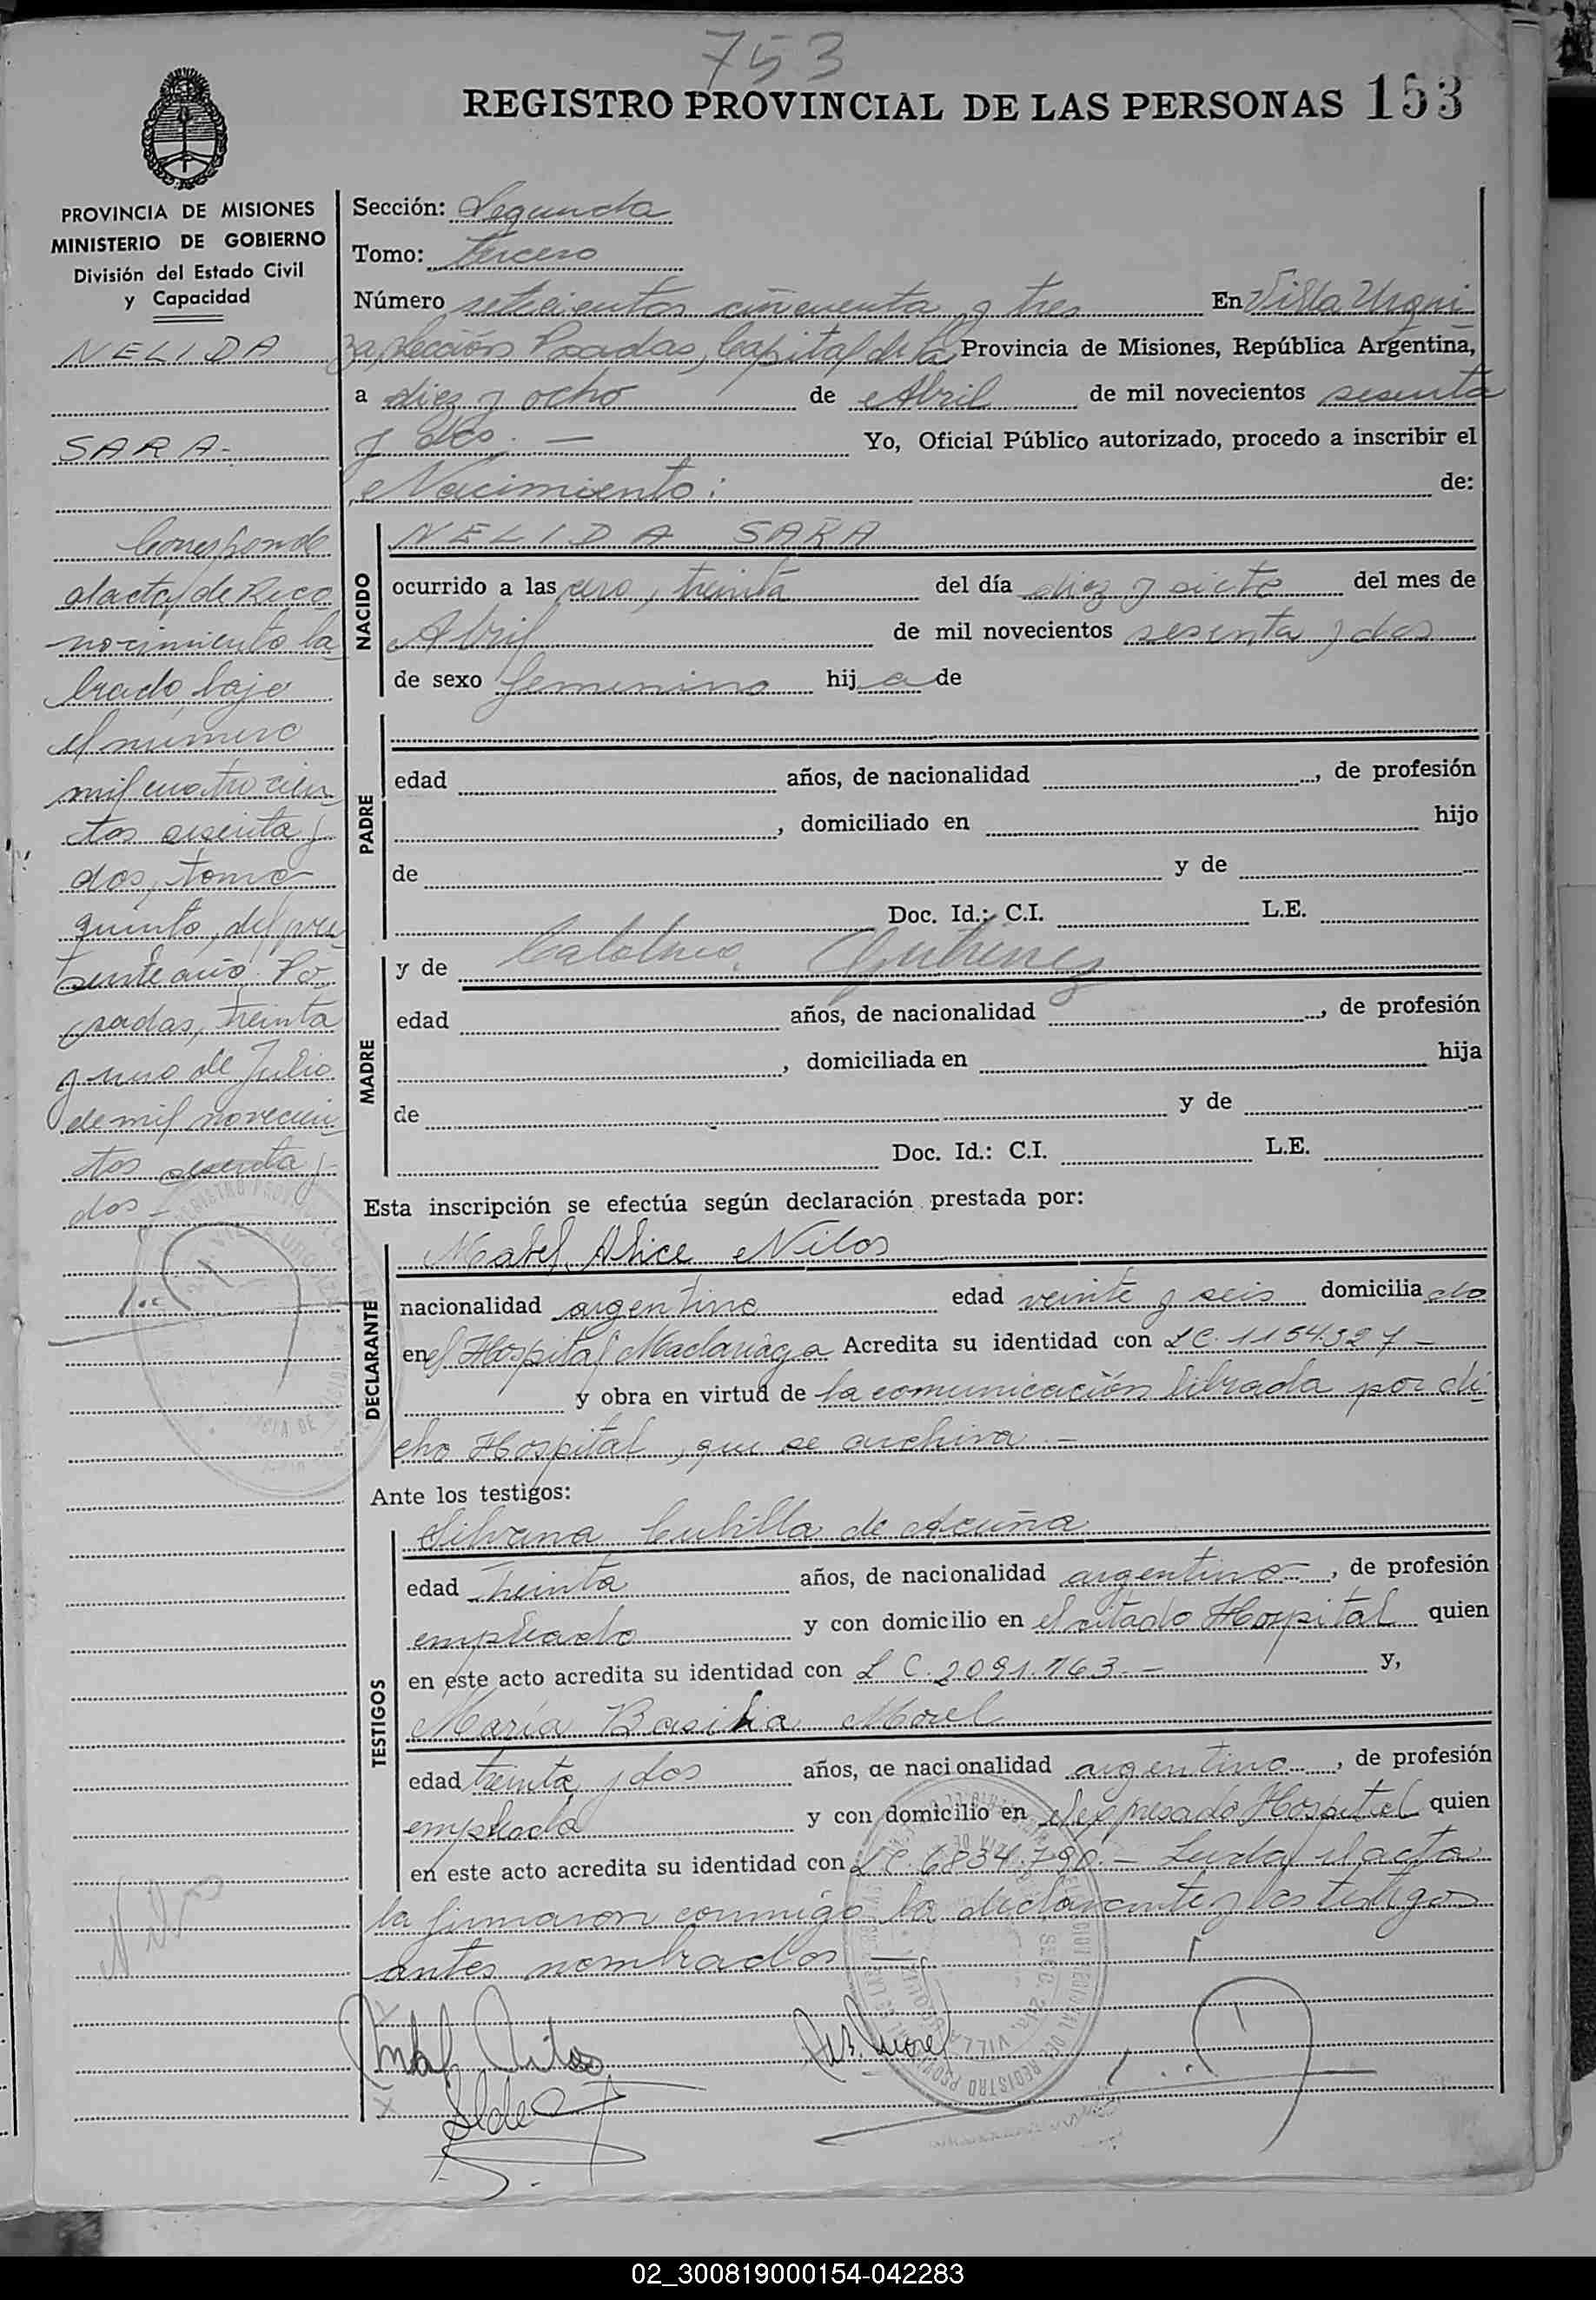 753
REGISTRO PROVINCIAL DE LAS PERSONAS 153
PROVINCIA DE MISIONES
MINISTERIO DE GOBIERNO
División del Estado Civil
y Capacidad
NELIDA
SARA-
Corresponde
al acta de Reco
nocimiento la
brado bajo
el número
mil cuatrocien
tos sesenta y
dos, tomo
quinto, del pre
sente año. Po
sadas, treinta
y uno de Julio
de mil novecien
tos sesenta y
dos -
Sección: Segunda
Tomo: tercero
Número setecientos cincuenta y tres En Villa Urqui
za, Sección Posadas, Capital de la Provincia de Misiones, República Argentina,
a diez y ocho de Abril de mil novecientos sesenta
y dos. — Yo, Oficial Público autorizado, procedo a inscribir el
Nacimiento: de:
NACIDO
NELIDA SARA
ocurrido a las cero, treinta del día diez y siete del mes de
Abril de mil novecientos sesenta y dos
de sexo femenino hija de
PADRE
edad años, de nacionalidad , de profesión
, domiciliado en hijo
de y de
Doc. Id.: C.I. L.E.
MADRE
y de
edad años, de nacionalidad , de profesión
, domiciliada en hija
de y de
Doc. Id.: C.I. L.E.
Esta inscripción se efectúa según declaración prestada por:
DECLARANTE
Mabel Alice Nilos
nacionalidad argentina edad veinte y seis domiciliado
en el Hospital Madariaga Acredita su identidad con LC. 1154.327 -
y obra en virtud de la comunicación librada por di
cho Hospital, que se archiva -
Ante los testigos:
TESTIGOS
Silvana Cubilla de Acuña
edad treinta años, de nacionalidad argentina , de profesión
empleada y con domicilio en el citado Hospital quien
en este acto acredita su identidad con L C. 2091.763. - y,
María Basilia Morel
edad treinta y dos años, de nacionalidad argentina , de profesión
empleada y con domicilio en el expresado Hospital quien
en este acto acredita su identidad con LC. 6834.790. - Leida el acta
la firmaron conmigo la declarante y los testigos
antes nombrados —
02_300819000154-042283